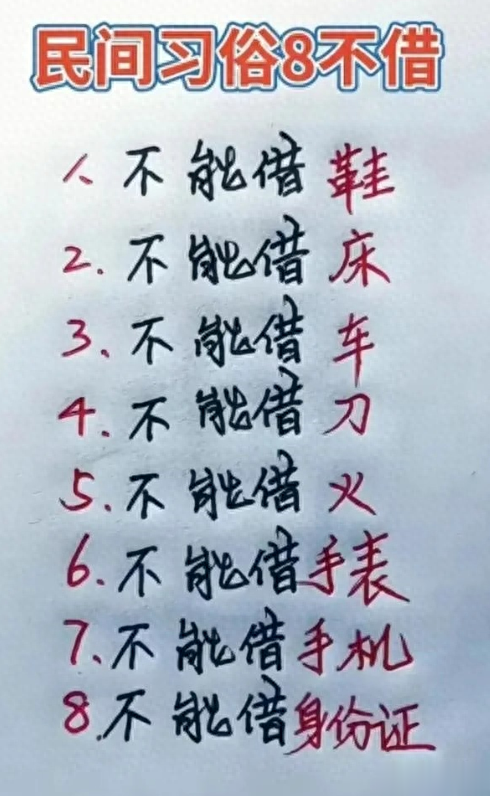 民间习俗8不借
1、不能借鞋
2.不能借床
3、不能借车
4.不能借刀
5.不能借火
6.不能借手表
7.不能借手机
8.不能借身份证